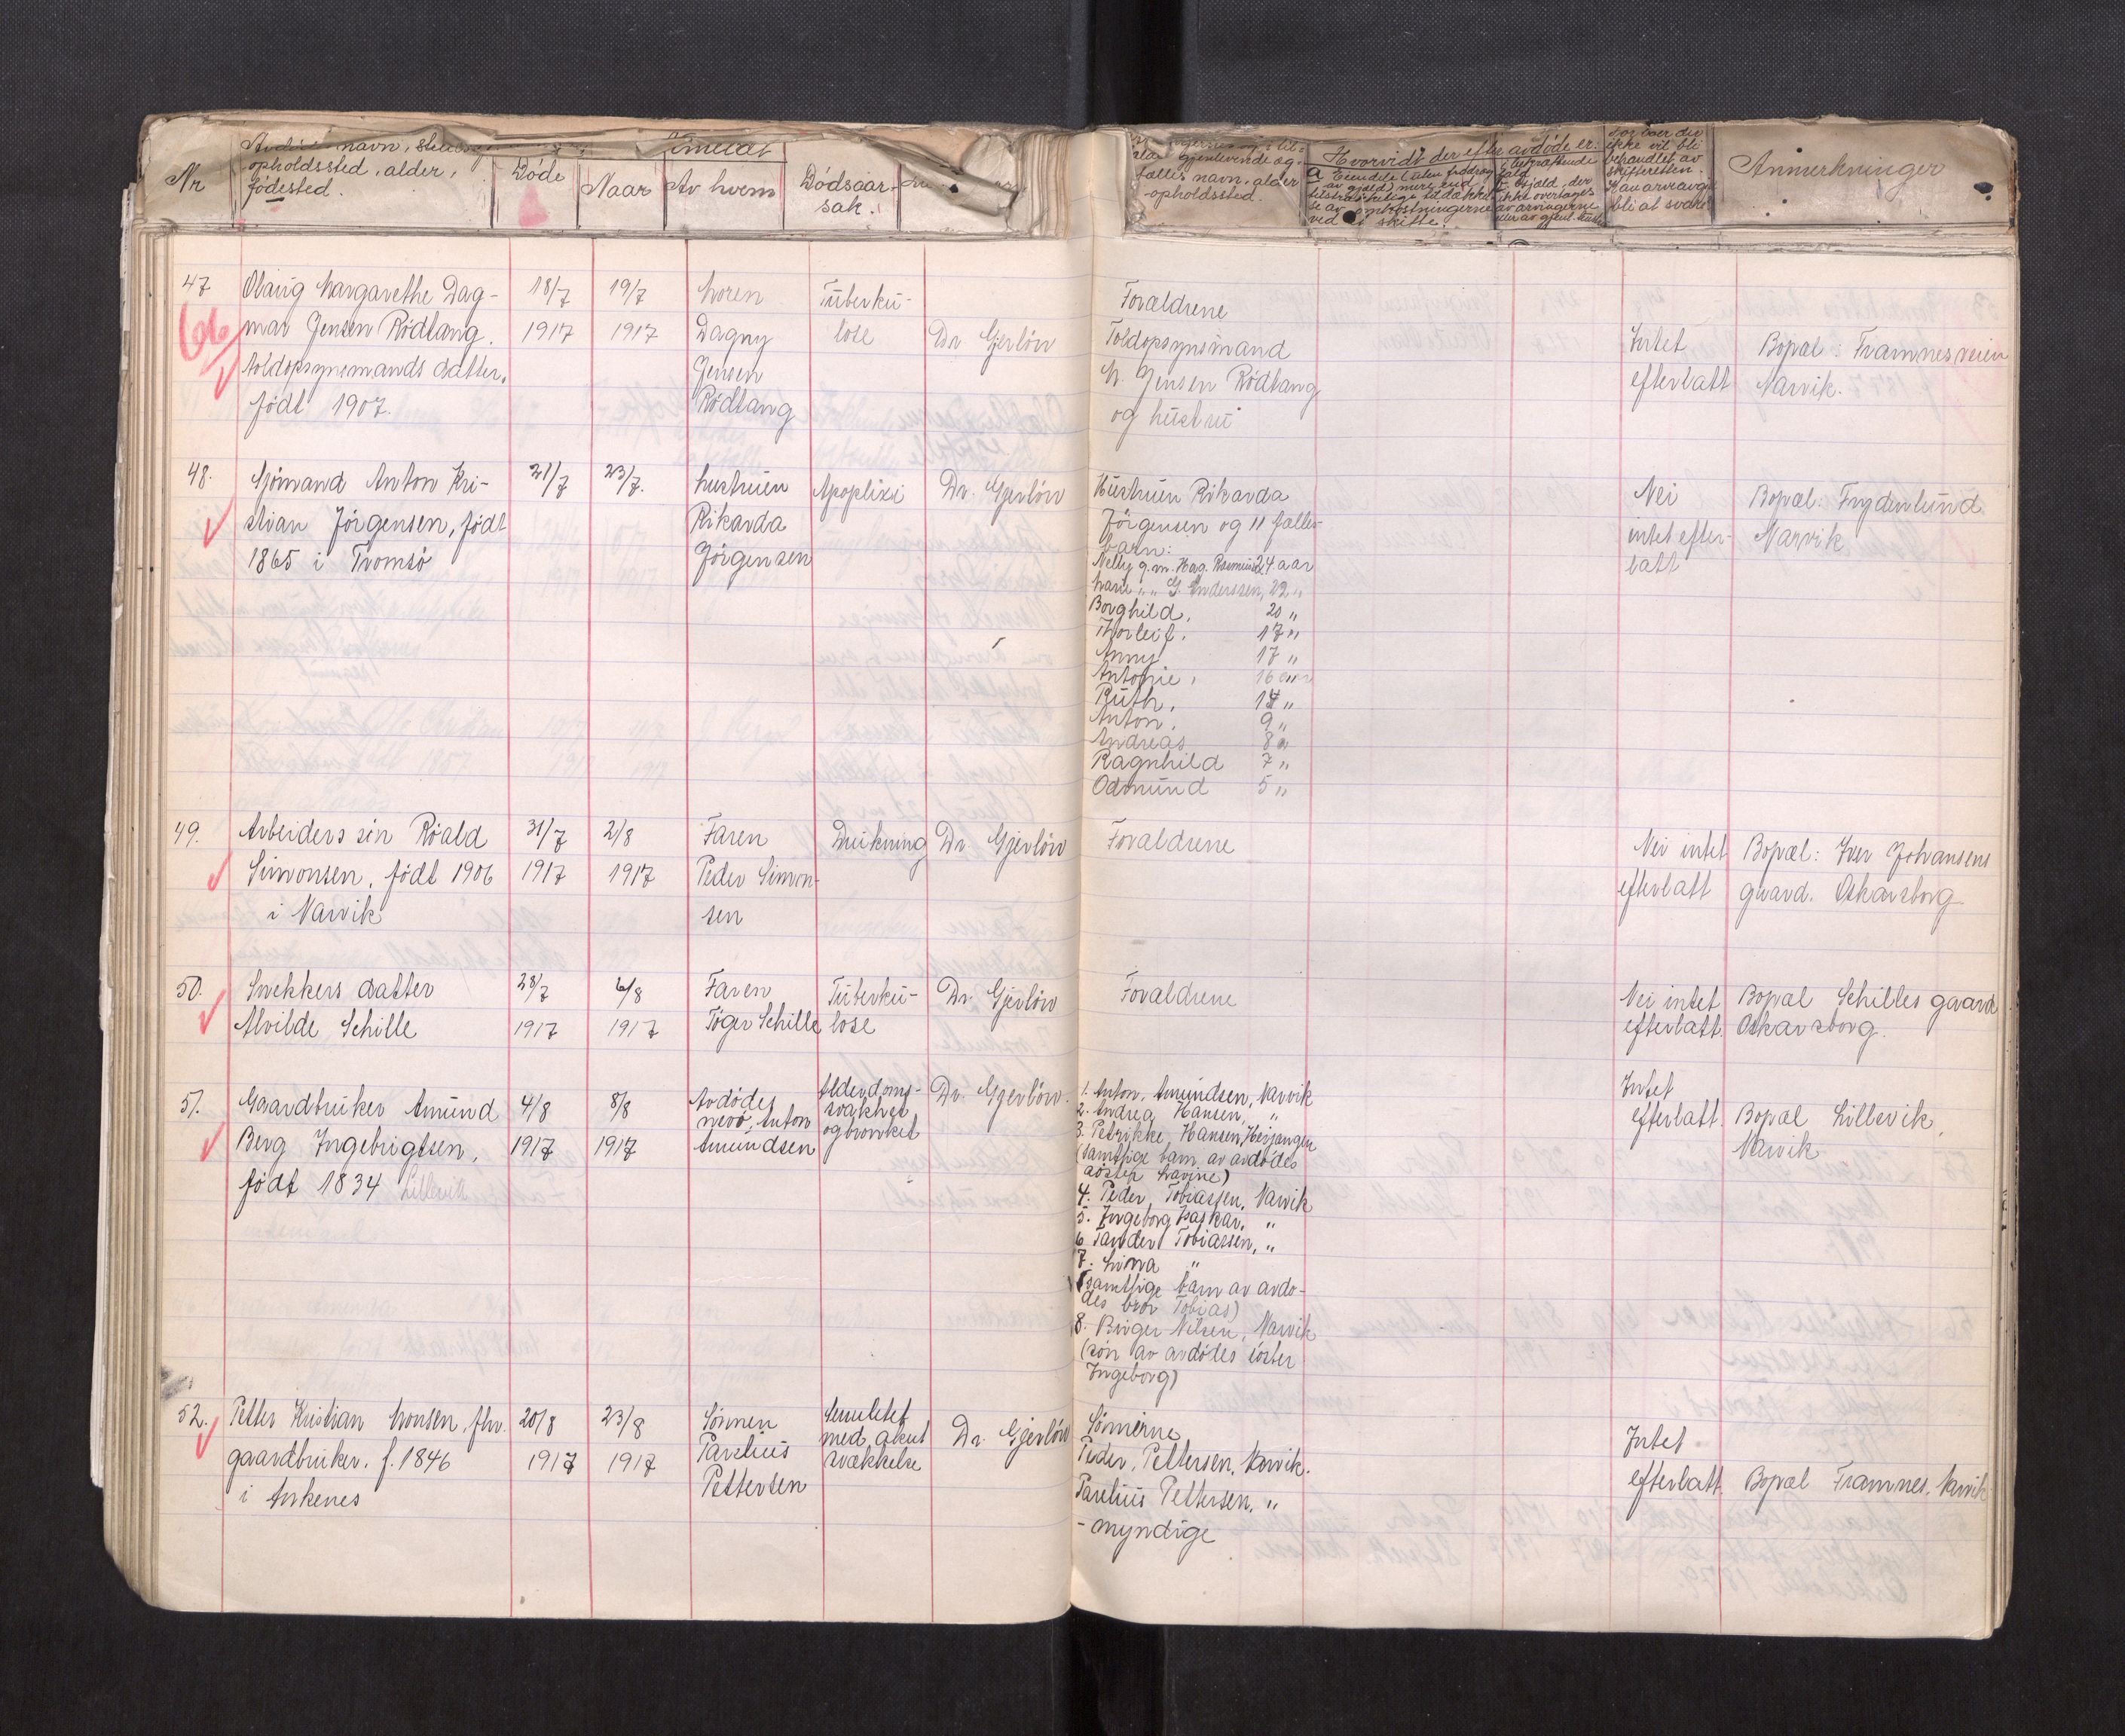 Nr
navn,
opholdssted, alder,
fødested.
Døde
Anmeldt
Naar
Av hvem
Dødsaar-
sak.
gjenlevende æg-
fælles navn, alder
opholdssted.
Hvorvidt der efter avdøde er:
ikke vil bli
behandlet av
skifteretten.
Anmerkninger
47
Olaug Margarethe Dag-
mar Jensen Rødtang.
toldopsynsmands datter,
født 1907.
18/7
1917
19/7
1917
Moren
Dagny
Jensen
Rødtang
Tuberku-
lose
Dr Gjerløw
Forældrene
Toldopsynsmand
M. Jensen Rødtang
og hustru
Intet
efterlatt
Bopæl: Framnesveien
Narvik.
66
48.
Sjømand Anton Kri-
stian Jørgensen, født
1865 i Tromsø
21/7
23/7.
hustruen
Rikarda
Jørgensen
Apoplexi
Dr. Gjerløw
Hustruen Rikarda
Jørgensen og 11 fælles-
barn:
Nelly g.m. Hag. Rasmus 24 aar
Marie " " G. Anderssen, 22 "
Borghild, 20 "
Thorleif, 17 "
Anny 17 "
Antonie, 16 aar
Ruth, 14 "
Anton, 9 "
Andreas 8 "
Ragnhild 7 "
Odmund 5 "
Nei
intet efter-
latt
Bopæl: Frydenlund
Narvik
49.
Arbeiders søn Roald
Simonsen, født 1906
i Narvik
31/7
1917
2/8
1917
Faren
Peder Simon-
sen
Drukning
Dr. Gjerløw
Forældrene
Nei intet
efterlatt
Bopæl: Iver Johansens
gaard. Oskarsborg
50.
Snekkers datter
Alvilde Schille
28/7
1917
6/8
1917
Faren
Tøger Schille
Tuberku-
lose
Dr. Gjerløw
Forældrene
Nei intet
efterlatt.
Bopæl Schilles gaard
Oskarsborg.
51.
Gaardbruker Amund
Berg Ingebrigtsen,
født 1834 Lillevik
4/8
1917
8/8
1917
Avdødes
nevø, Anton
Amundsen
Alderdoms-
svakhet
og bronkit
Dr. Gjerløw.
1. Anton Amundsen, Narvik
2. Andrea Hansen, "
3. Petrikke Hansen, Herjangen
(samtlige barn av avdødes
søster Marine)
4. Peder Tobiassen, Narvik
5. Ingeborg Isaksen, "
6. Sander Tobiassen, "
7. Lina "
(samtlige barn av avdø-
des bror Tobias)
8. Birger Nilsen, Narvik
(søn av avdødes søster
Ingeborg)
Intet
efterlatt.
Bopæl Lillevik,
Narvik
52.
Petter Kristian Monsen, fhv.
gaardbruker. f. 1846
i Ankenes
20/8
1917
23/8
1917
Sønnen
Parelius
Pettersen
Senilitet
med akut
svækkelse
Dr. Gjerløw
Sønnerne
Peder Pettersen, Narvik.
Parelius Pettersen, "
- myndige
Intet
efterlatt.
Bopæl Framnes, Narvik